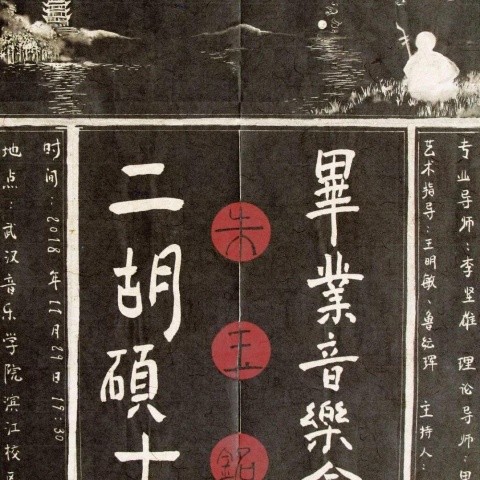 专业导师：李坚雄 理论导师：
艺术指导：王明敏、鲁 主持人：
畢業音樂會
朱玉銘
二胡碩士
时间：2018年11月29日19:30
地点：武汉音乐学院滨江校区